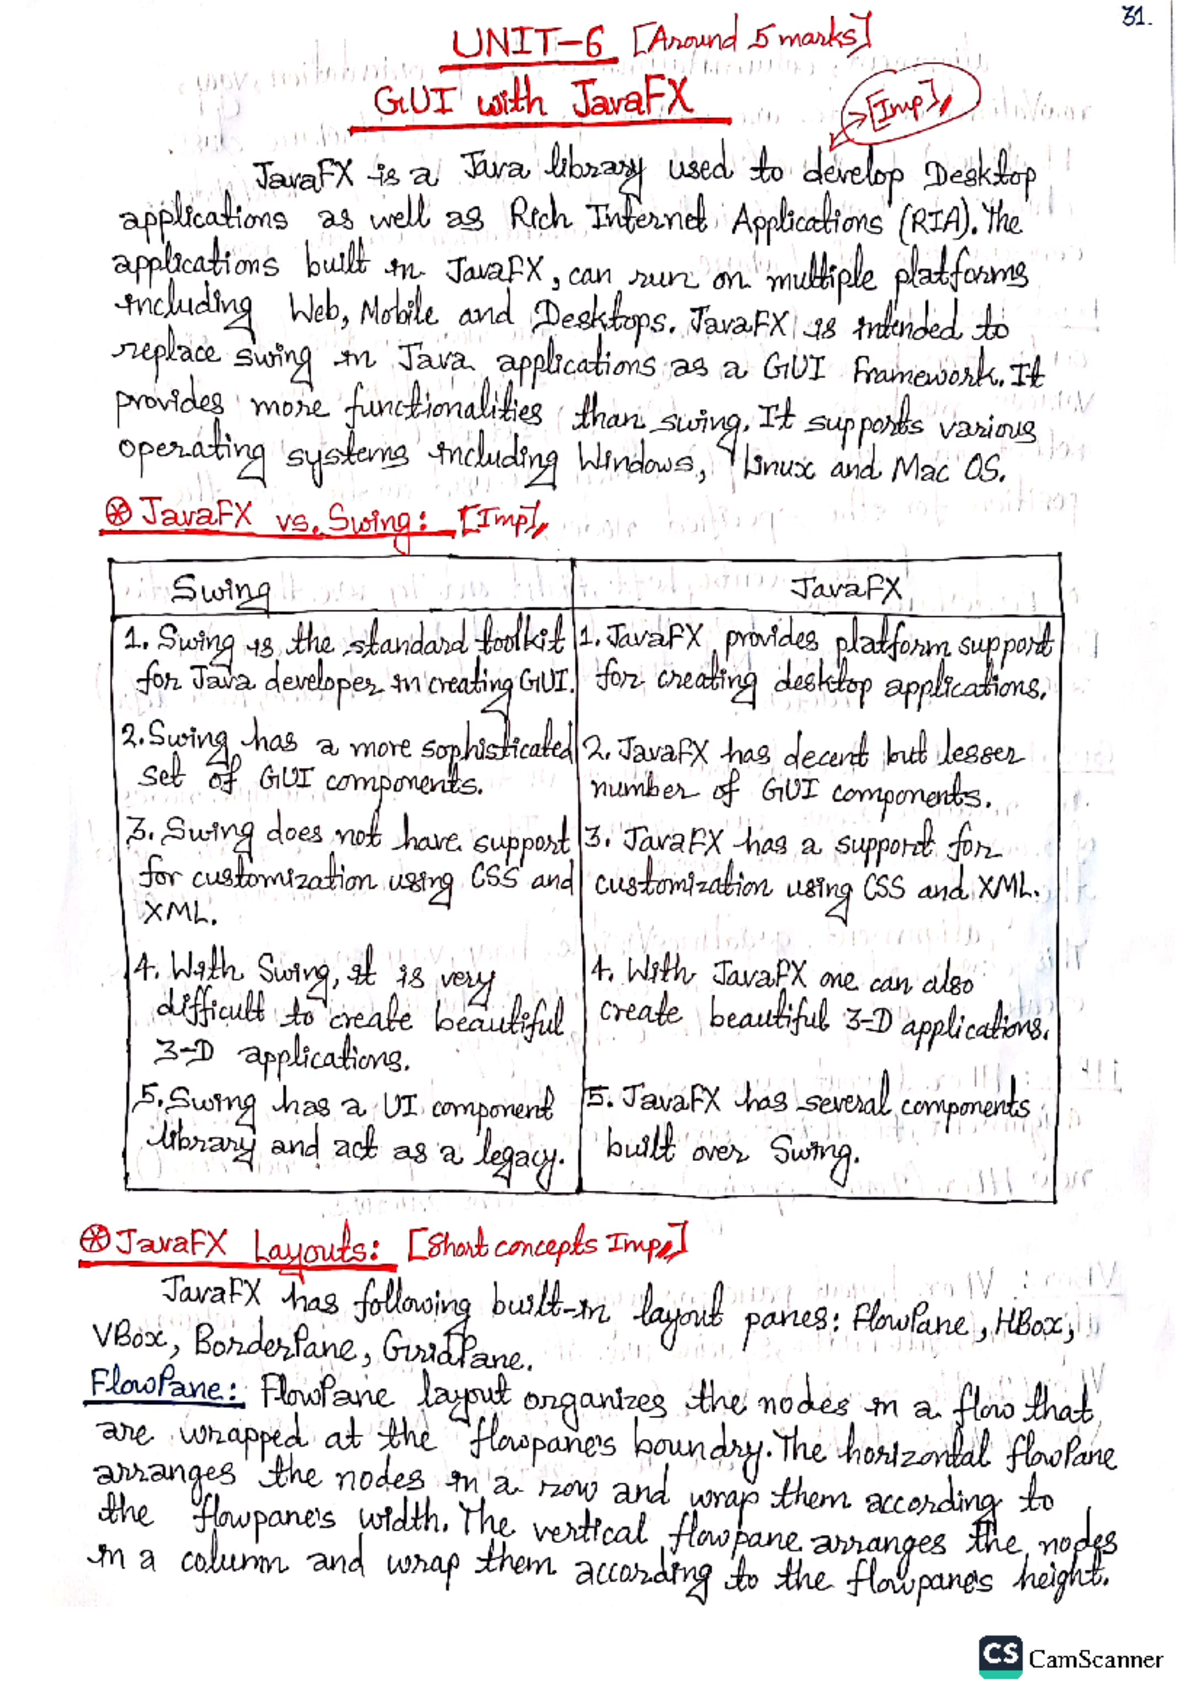 31.
UNIT-6 [Around 5 marks]
GUI with JavaFX
→[Imp],
JavaFX is a Java library used to develop Desktop
applications as well as Rich Internet Applications (RIA). The
applications built in JavaFX, can run on multiple platforms
including Web, Mobile and Desktops. JavaFX is intended to
replace swing in Java applications as a GUI framework. It
provides more functionalities than swing. It supports various
operating systems including Windows, Linux and Mac OS.
⊛ JavaFX vs. Swing: [Imp],
Swing
JavaFX
1. Swing is the standard toolkit
for Java developer in creating GUI.
1. JavaFX provides platform support
for creating desktop applications.
2. Swing has a more sophisticated
set of GUI components.
2. JavaFX has decent but lesser
number of GUI components.
3. Swing does not have support
for customization using CSS and
XML.
3. JavaFX has a support for
customization using CSS and XML.
4. With Swing, it is very
difficult to create beautiful
3-D applications.
4. With JavaFX one can also
create beautiful 3-D applications.
5. Swing has a UI component
library and act as a legacy.
5. JavaFX has several components
built over Swing.
⊛ JavaFX Layouts: [Short concepts Imp,]
JavaFX has following built-in layout panes: FlowPane, HBox,
VBox, BorderPane, GridPane.
FlowPane: FlowPane layout organizes the nodes in a flow that
are wrapped at the flowpane's boundry. The horizontal flowPane
arranges the nodes in a row and wrap them according to
the flowpane's width. The vertical flowpane arranges the nodes
in a column and wrap them according to the flowpane's height.
CS CamScanner